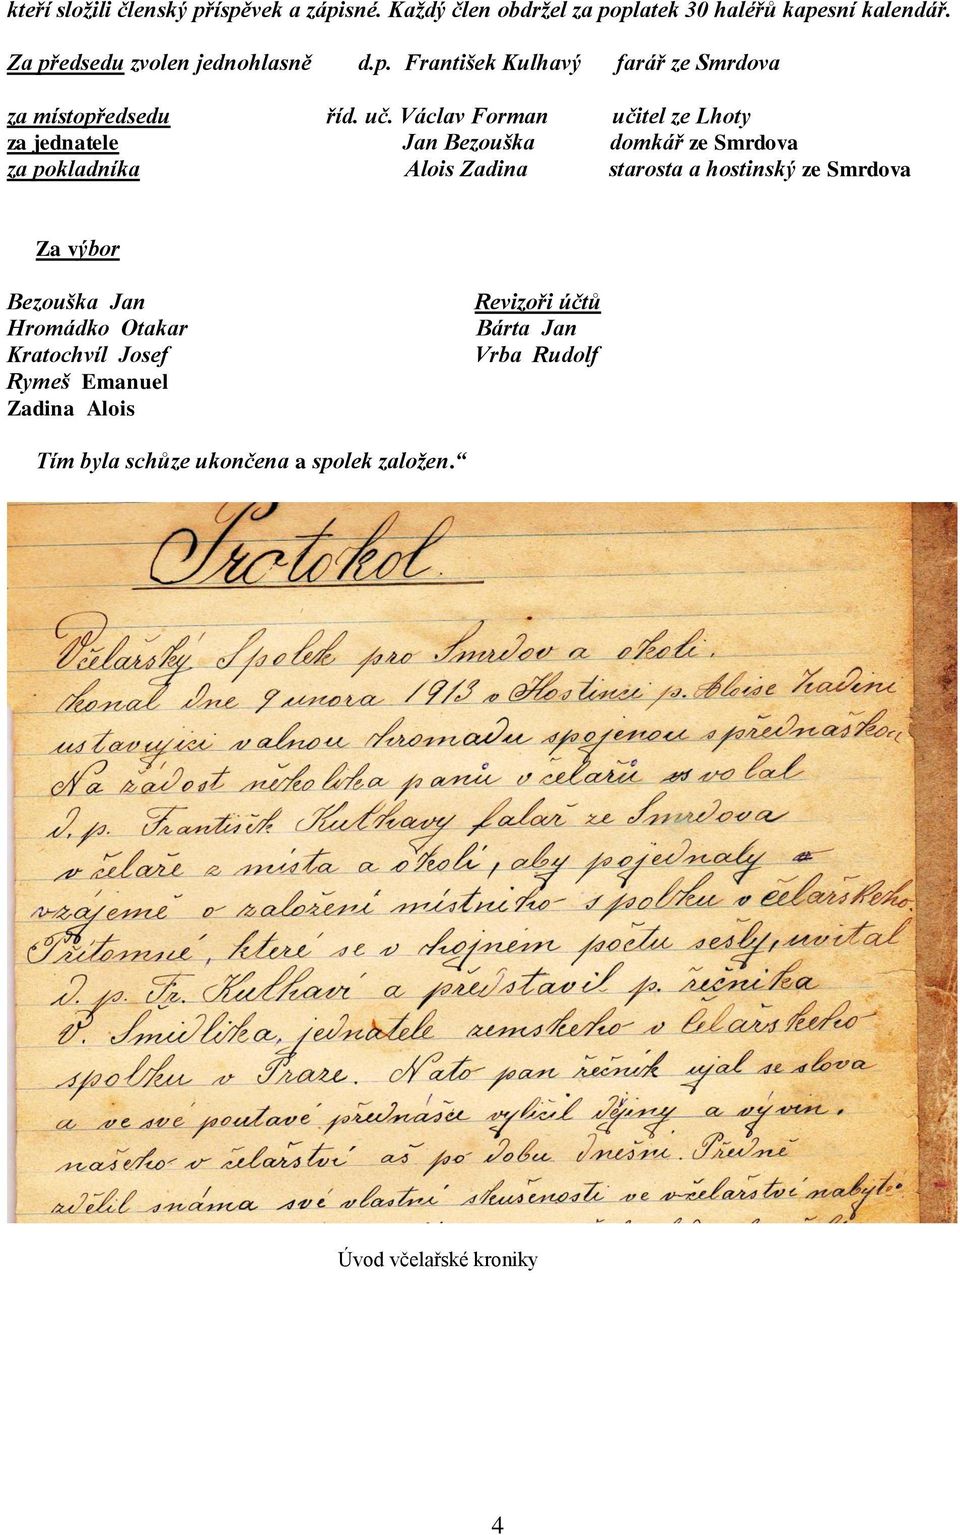 kteří složili členský příspěvek a zápisné. Každý člen obdržel za poplatek 30 haléřů kapesní kalendář.
Za předsedu zvolen jednohlasně d.p. František Kulhavý farář ze Smrdova
za místopředsedu říd. uč. Václav Forman učitel ze Lhoty
za jednatele Jan Bezouška domkář ze Smrdova
za pokladníka Alois Zadina starosta a hostinský ze Smrdova
Za výbor
Bezouška Jan Revizoři účtů
Hromádko Otakar Bárta Jan
Kratochvíl Josef Vrba Rudolf
Rymeš Emanuel
Zadina Alois
Tím byla schůze ukončena a spolek založen.“
Protokol.
Včelařský Spolek pro Smrdov a okolí.
konal dne 9 unora 1913 v Hostinci p. Aloise Zadini
ustavujici valnou hromadu spojenou s přednaškou
Na žádost několika panů včelařů svolal
d. p. František Kulhavy falař ze Smrdova
včelaře z místa a okolí, aby pojednaly
vzájemě o založení místniho spolku včelařskeho.
Přítomné, které se v hojném počtu sešly, uvítal
d. p. Fr. Kulhaví a představil p. řečnika
V. Šmidlika, jednatele zemskeho včelařskeho
spolku v Praze. Nato pan řečník ujal se slova
a ve své poutavé přednášce vyličil dějiny a vývin.
našeho včelařství aš po dobu dnešní. Předně
zdělil snáma své vlastní skušenosti ve včelařství nabyté.
Úvod včelařské kroniky
4